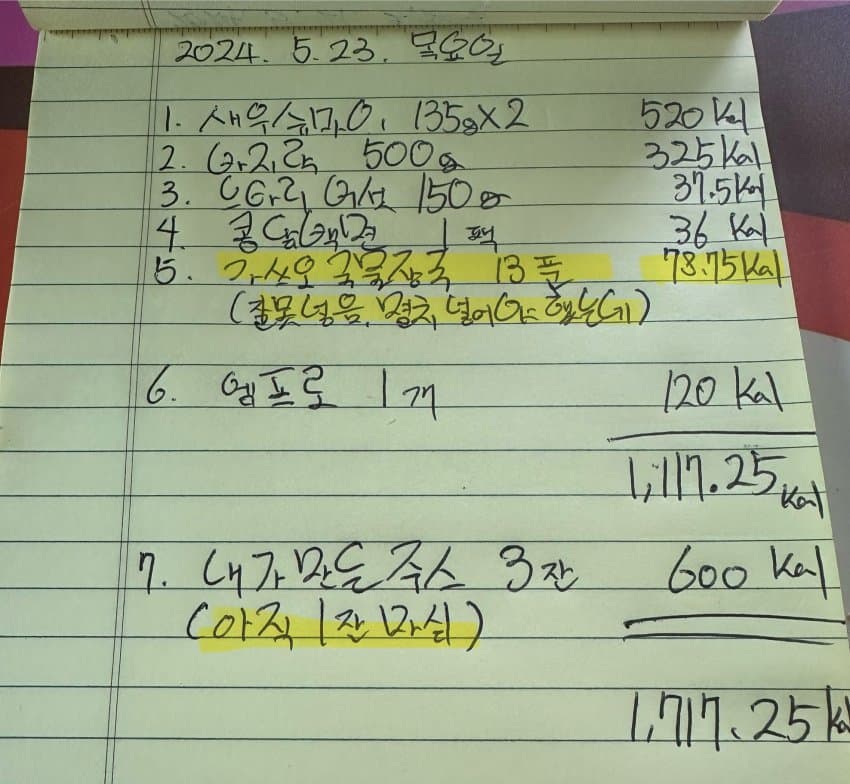 2024. 5. 23. 목요일
1. 새우슈마이 135g×2 520 Kal
2. 바지락 500g 325 Kal
3. 느타리 버섯 150g 37.5 Kal
4. 콩담백면 1팩 36 Kal
5. 가쓰오 국물장국 13푼 78.75 Kal
(잘못넣음. 멸치 넣어야 했는데)
6. 엠프로 1개 120 Kal
1,117.25 Kal
7. 내가 만든 주스 3잔 600 Kal
(아직 1잔 마심)
1,717.25 Kal